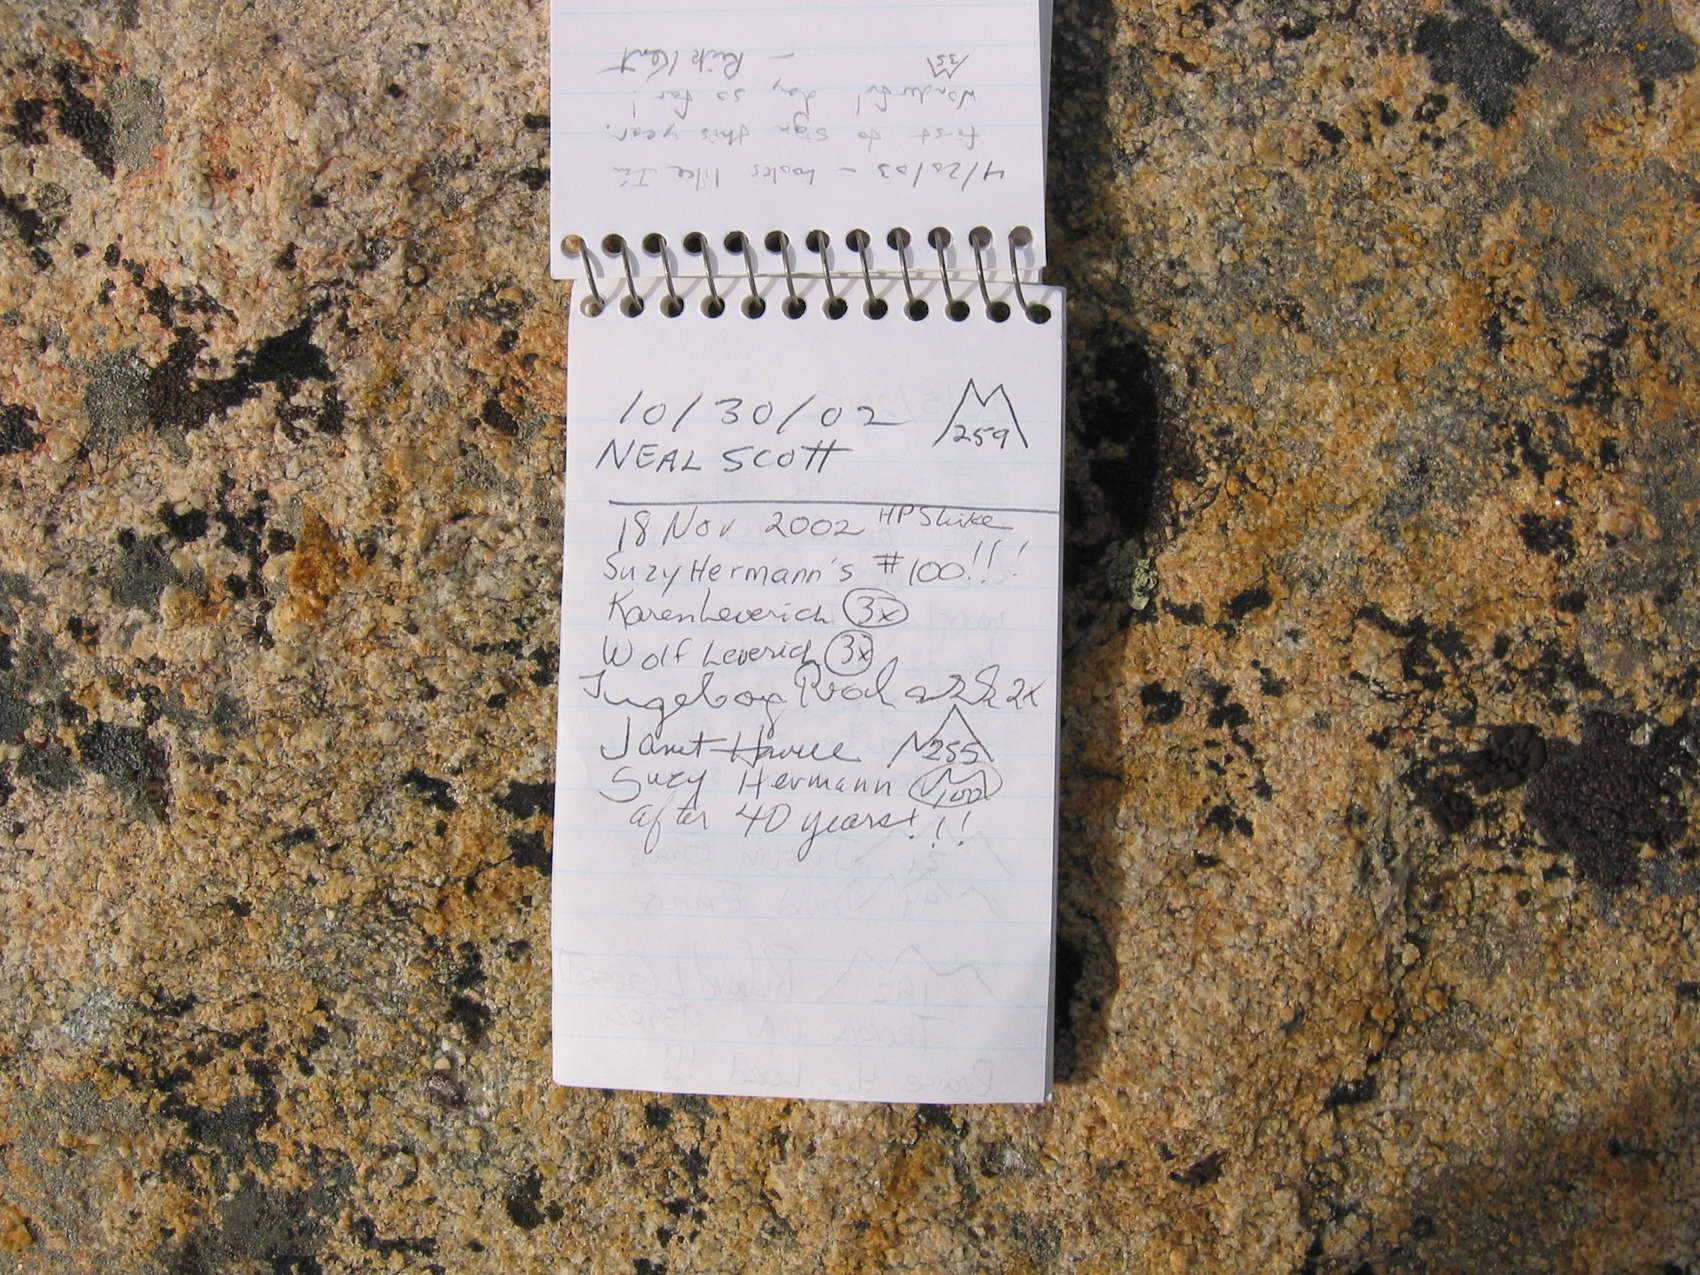 4/20/03 – Looks like I'm
first to sign this year.
Wonderful day so far!
35 – Rick Kent
10/30/02 259
NEAL SCOTT
18 Nov 2002 HPS hike
Suzy Hermann's #100!!!
Karen Leverich 3x
Wolf Leverich 3x
Ingeborg 2x
Janet Howell 255
Suzy Hermann 100
after 40 years!!!